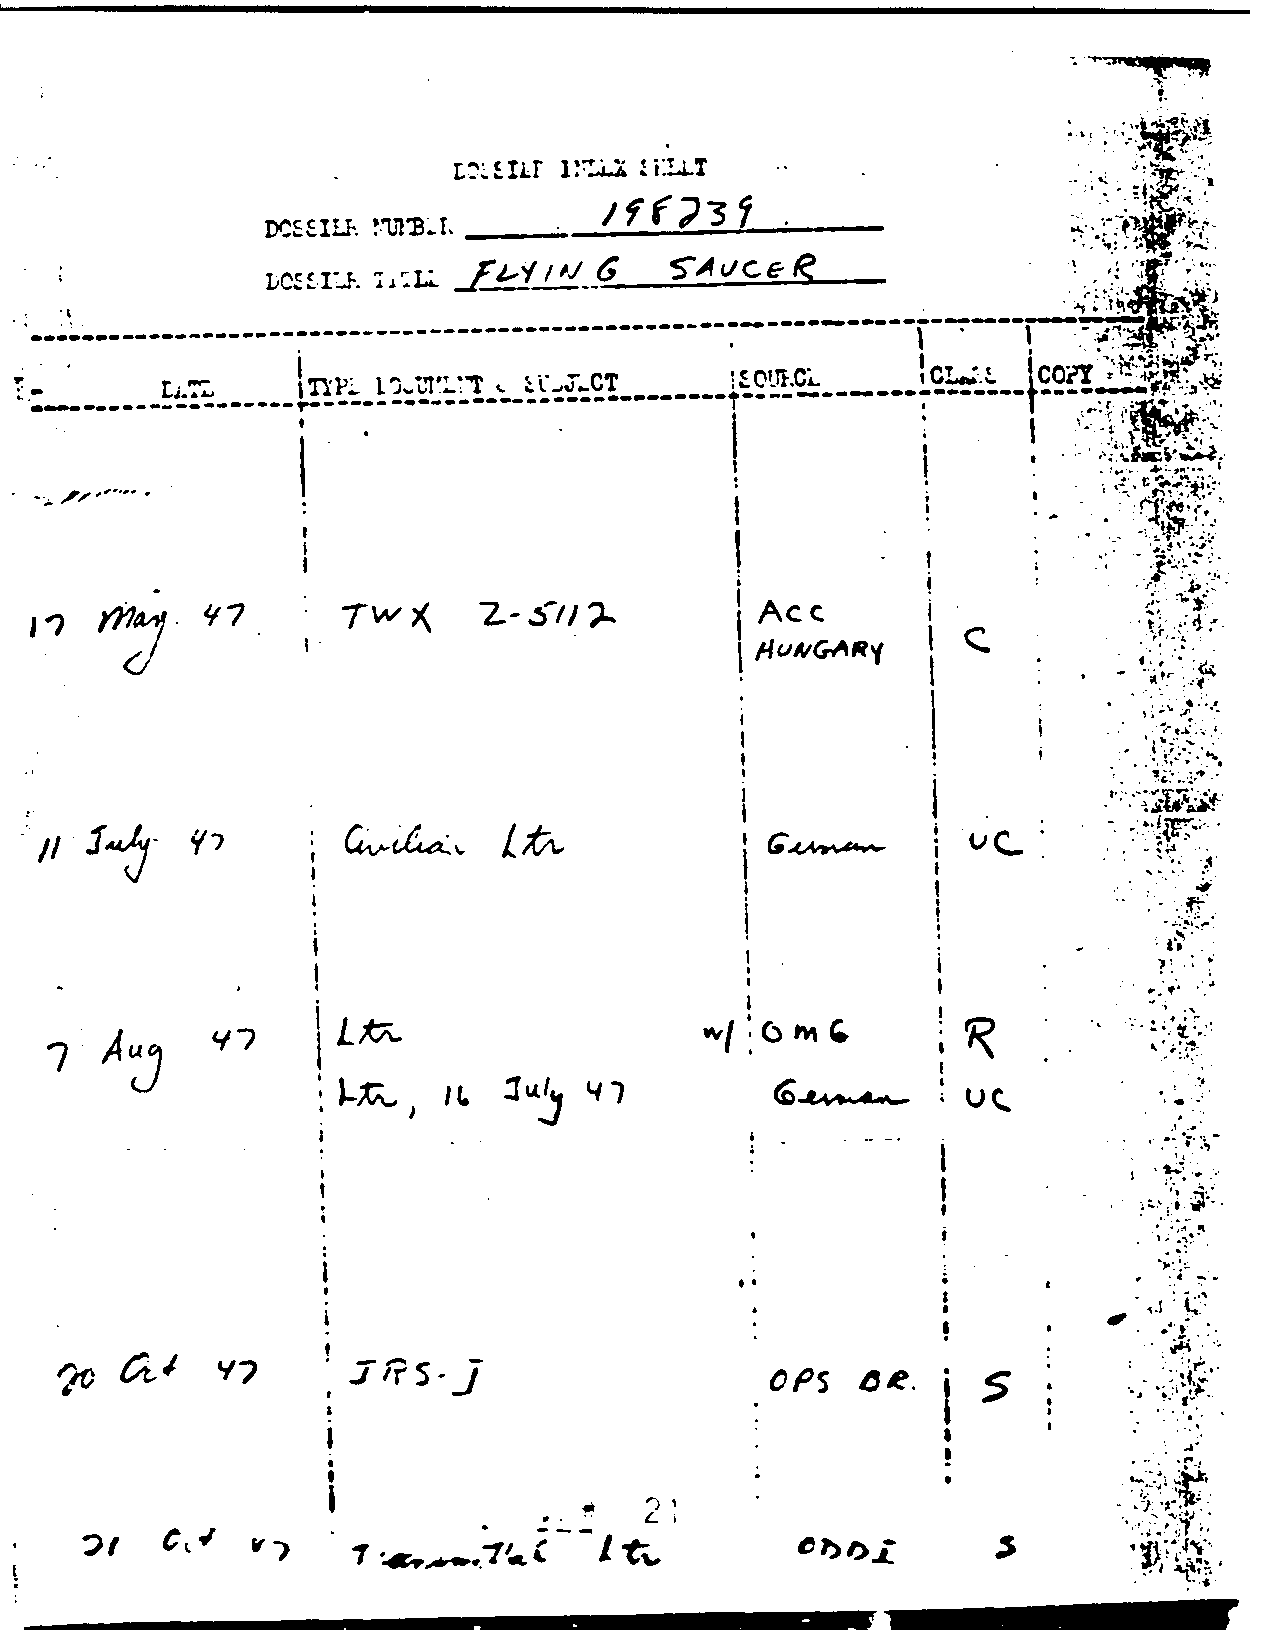 DOSSIER INDEX SHEET
DOSSIER NUMBER 198239
DOSSIER TITLE FLYING SAUCER
DATE TYPE DOCUMENT & SUBJECT SOURCE CLASS COPY
17 May 47 TWX Z-5112 ACC
HUNGARY C
11 July 47 Civilian Ltr German UC
7 Aug 47 Ltr w/ OMG R
Ltr, 16 July 47 German UC
20 Oct 47 IRS-J OPS BR. S
21
21 Oct 47 Transmittal Ltr ODDI S